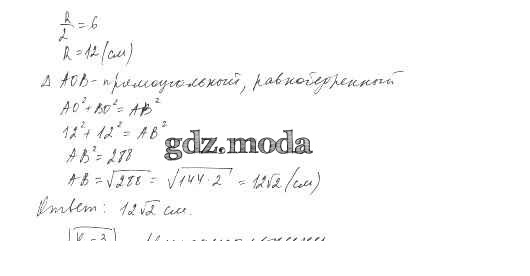 R/2 = 6
R = 12 (см)
Δ AOB - прямоугольный, равнобедренный
AO² + BO² = AB²
12² + 12² = AB²
gdz.moda
AB² = 288
AB = √288 = √144·2 = 12√2 (см)
Ответ: 12√2 см.